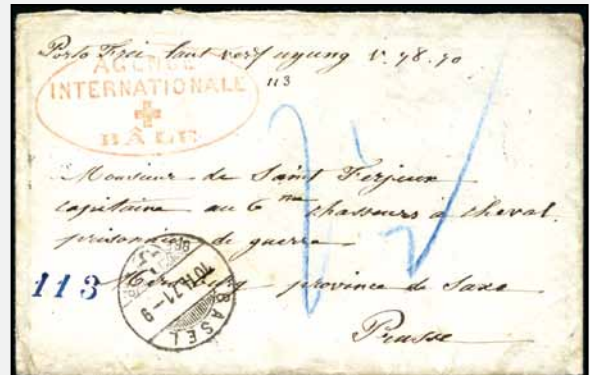 Porto Frei laut verfugung v. 98.70
AGENCE
INTERNATIONALE
BÂLE
113
Monsieur de Saint Ferjeux
capitaine au 6me chasseurs à cheval.
prisonnier de guerre
113
province de Saxe
Prusse
BASEL
10 II 71-9